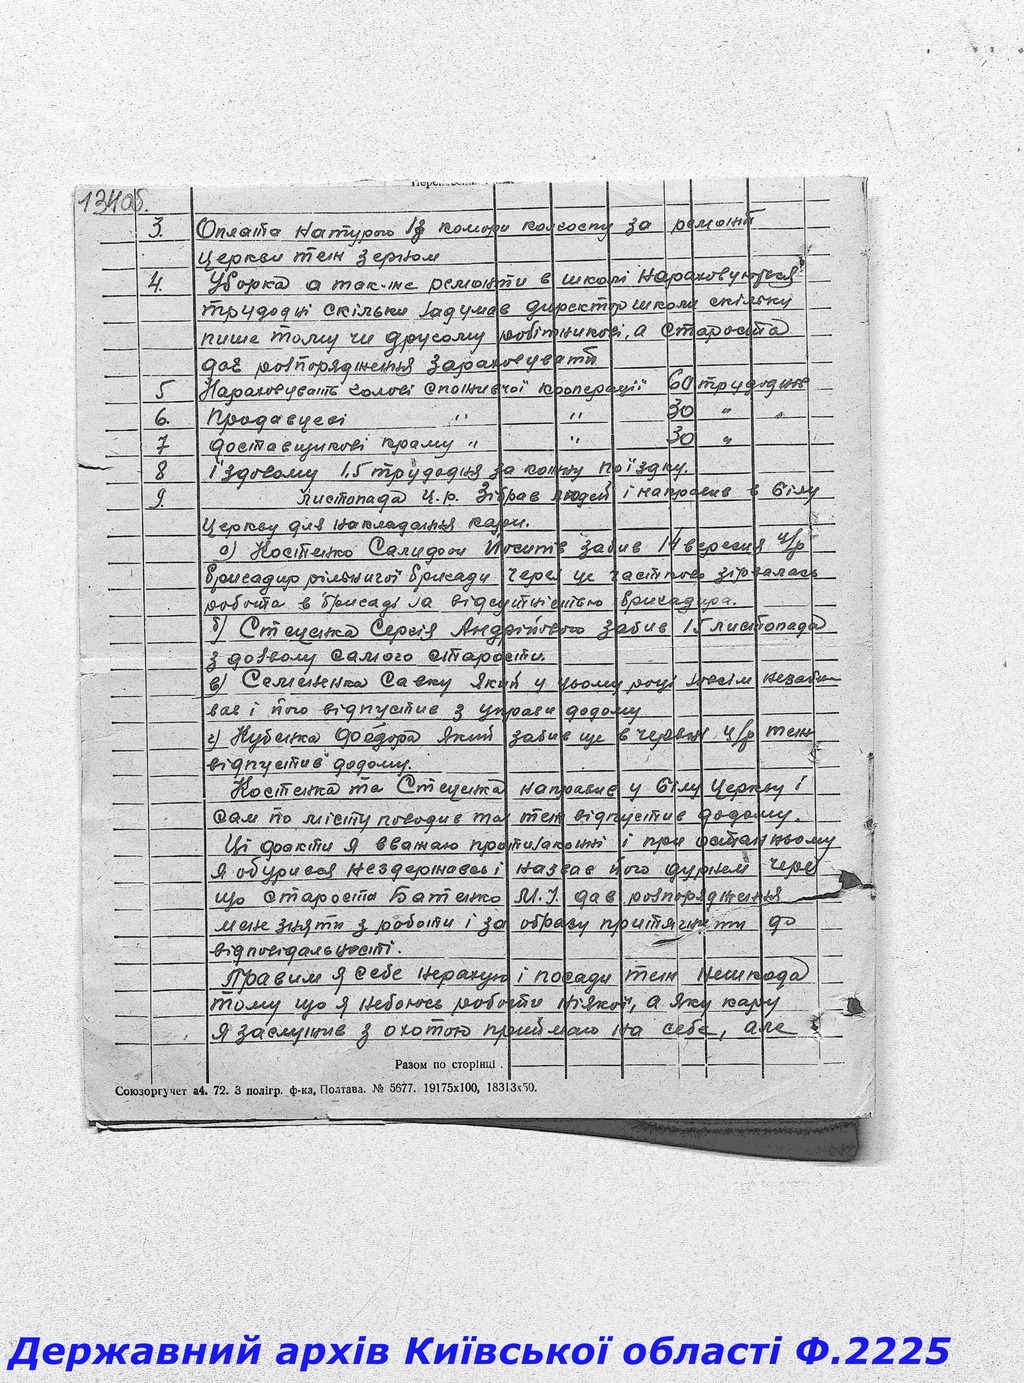 134 об.
3. Оплата натурою із комори колгоспу за ремонт
церкви теж зерном
4. Уборка а так-же ремонти в школі нараховуються
трудодні скільки задумав директор школи скільки
пише тому чи другому робітникові, а староста
дає розпорядження зараховувати
5 Нараховувать голові споживчої кооперації 60 трудоднів
6. Продавцеві " " 30 " "
7 доставщикові краму " " 30 "
8 їздовому 1.5 трудодня за кожну поїздку.
9. листопада ц.р. Зібрав людей і направив в Білу
Церкву для накладання кари.
а) Костенко Салидон Йосипів забив 14 вересня ц/р
бригадир рільничої бригади через це частково зірвалась
робота в бригаді за відсутністью бригадира.
б) Стеценка Сергія Андрійового забив 15 листопада
з дозволу самого старости.
в) Семиенка Савку який у цьому році зовсім незаби-
вав і його відпустив з управи додому
г) Кубенка Федора який забив ще в червні ц/р теж
відпустив додому.
Костенка та Стеценка направив у Білу Церкву і
сам по місту поводив та теж відпустив додому.
Ці факти я вважаю протизаконні і при останньому
я обурився нездержавсь і назвав його дурнем через
що староста Батенко М.І. дав розпорядження
мене зняти з роботи і за образу притягнути до
відповідальності.
Правим я себе нерахую і посади теж нешкода
тому що я небоюсь роботи ніякої, а яку кару
я заслужив з охотою приймаю на себе, але
Разом по сторінці .
Союзоргучет а4. 72. 3 полігр. ф-ка, Полтава. № 5677. 19175х100, 18313х50.
Державний архів Київської області Ф.2225